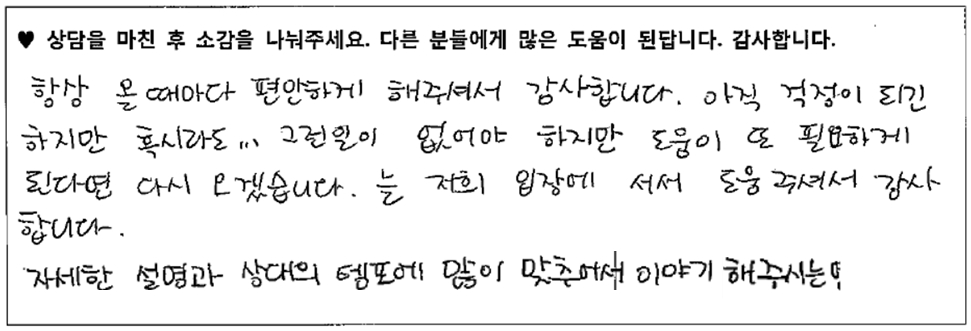 ♥ 상담을 마친 후 소감을 나눠주세요. 다른 분들에게 많은 도움이 된답니다. 감사합니다.
항상 올때마다 편안하게 해주셔서 감사합니다. 아직 걱정이 되긴
하지만 혹시라도... 그런일이 없어야 하지만 도움이 또 필요하게
된다면 다시 오겠습니다. 늘 저희 입장에 서서 도움주셔서 감사
합니다.
자세한 설명과 상대의 템포에 많이 맞추어서 이야기 해주시는